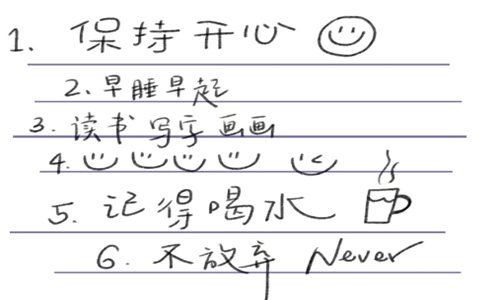 1. 保持开心
2. 早睡早起
3. 读书写字画画
4.
5. 记得喝水
6. 不放弃 Never